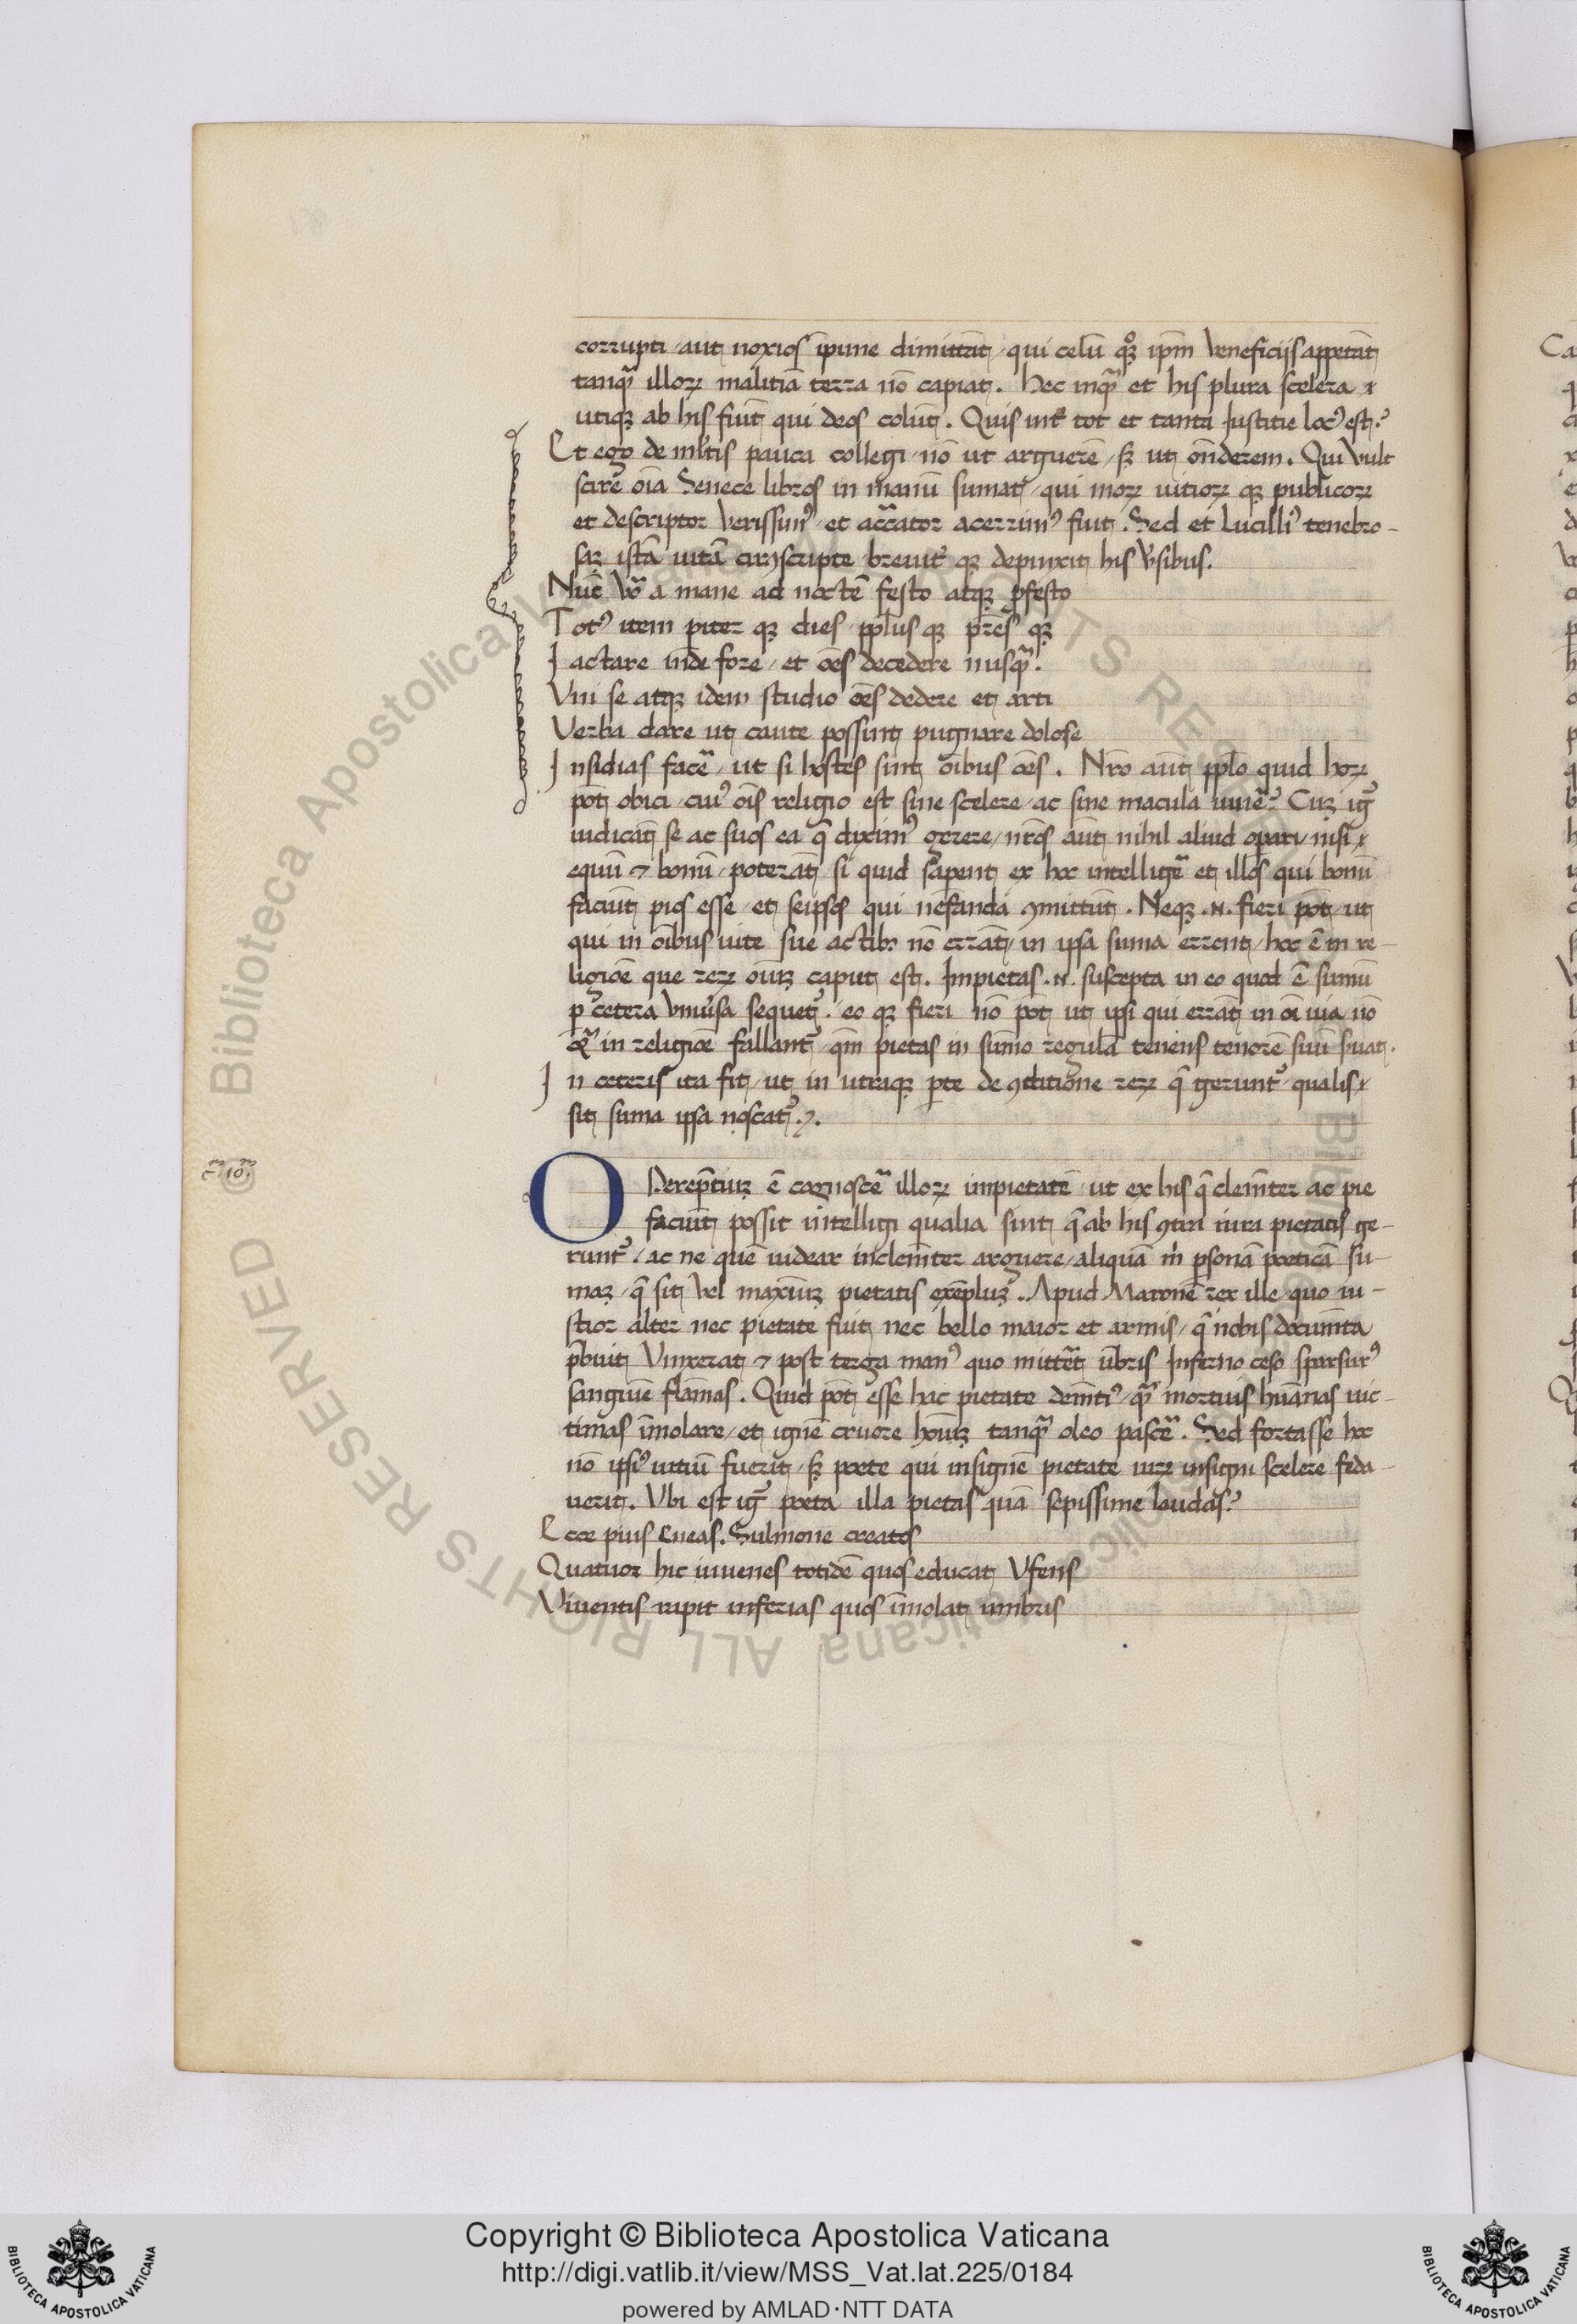 corrupti / aut noxios īpune dimittāt / qui celū qȝ ipm̄ veneficijs appetāt
tanqᷓ illoꝝ malitiā terra nō capiat. hec inqᷓ et his plura scelera
utiqꝫ ab his fiūt qui deos colūt. Quis int̉ tot et tanta Iustitie locꝰ est?
Et ego de ml̉tis pauca collegi / nō ut arguerē / sꝫ ut on̄derem. Qui vult
scire oīa Senece libros in manū sumat / qui moꝝ uitioꝝ qꝫ publicoꝝ
et descriptor verissimꝰ / et accᷓator acerrimꝰ fuit. Sed et Lucilliꝰ tenebro-
saꝫ istā uitā circūscripte breuit̉ qꝫ depinxit his v̉sibus.
Nūc vᷓo a mane ad noctē festo atqꝫ ꝓfesto
Totꝰ item piter qꝫ dies ppl̄us qꝫ pr̄es qꝫ
Iactare inde fore / et oēs decedere nusqᷓ.
Vni se atqꝫ idem studio oēs dedere et arti
Verba dare ut caute possint pugnare dolose
Insidias facēᷓ / ut si hostes sint oībus oēs. Nr̄o aūt pplo quid hoꝝ
pōt obici / cuiꝰ oīs religio est sine scelere / ac sine macula uiuēᷓ? Cuꝫ igᷓ
iudicāt se ac suos ea q̄ diximꝰ gerere / nr̄os aūt nihil aliud opari / nisi
equū ⁊ bonū / poterāt si quid saperent ex hoc intelligēᷓ et illos qui bonū
faciūt pios esse / et seipsos qui nefanda ꝯmittūt. Neqꝫ .N. fieri pōt / ut
qui in oībus uite sue actibꝫ nō errāt / in ipsa suma errent / hoc ē in re-
ligiōe que reꝝ oīuꝫ caput est. Impietas .N. suscepta in eo quod ē sumū
p cetera vniủsa sequet̉. eo qꝫ fieri nō pōt ut ipsi qui errāt in oī uia nō
& in religiōe fallant̉ / qm̄ pietas in sum̄o regulā tenens tenorē suū s̉uat.
In ceteris ita fit / ut in utraqꝫ parte de ꝯditione reꝝ q̄ gerunt̉ / qualis
sit suma ipsa noscat̉.
cᵐ. 10ᵐ.
OPereptiuꝫ ē cognoscēᷓ illoꝝ impietatē / ut ex his q̄ clem̄ter ac pie
faciūt possit intelligi qualia sint q̄ ab his ꝯtra iura pietatis ge-
runt̉. ac ne quē uidear inclem̄ter arguere / aliquā m̉ psonā poeticā su-
maꝫ / q̄ sit vel maxīuꝫ pietatis exēpluꝫ. Apud Maronē rex ille / quo iu-
stior alter nec pietate fuit / nec bello maior et armis / q̄ nobis documēta
p̄buit Vinxerat ⁊ post terga manꝰ quo mittēt ūbris Inferno ceso sparsurꝰ
sanguīe flāmas. Quid pōt esse hac pietate clem̄tiꝰ / qᷓ mortuis hūanas uic-
timas īmolare / et ignē cruore hoīuꝫ tanqᷓ oleo pascēᷓ. Sed fortasse hoc
nō ipsiꝰ uitiū fuerit / sꝫ poete qui insignē pietate uirꝫ insigni scelere feda-
uerit. Vbi est igᷓ poeta illa pietas quā sepissime laudas?
Ecce pius Eneas. Sulmone creatos
Quatuor hic iuuenes totidē quos educat Vfens
Viuentis rapit inferias quos īmolat umbris
Copyright © Biblioteca Apostolica Vaticana
http://digi.vatlib.it/view/MSS_Vat.lat.225/0184
powered by AMLAD·NTT DATA